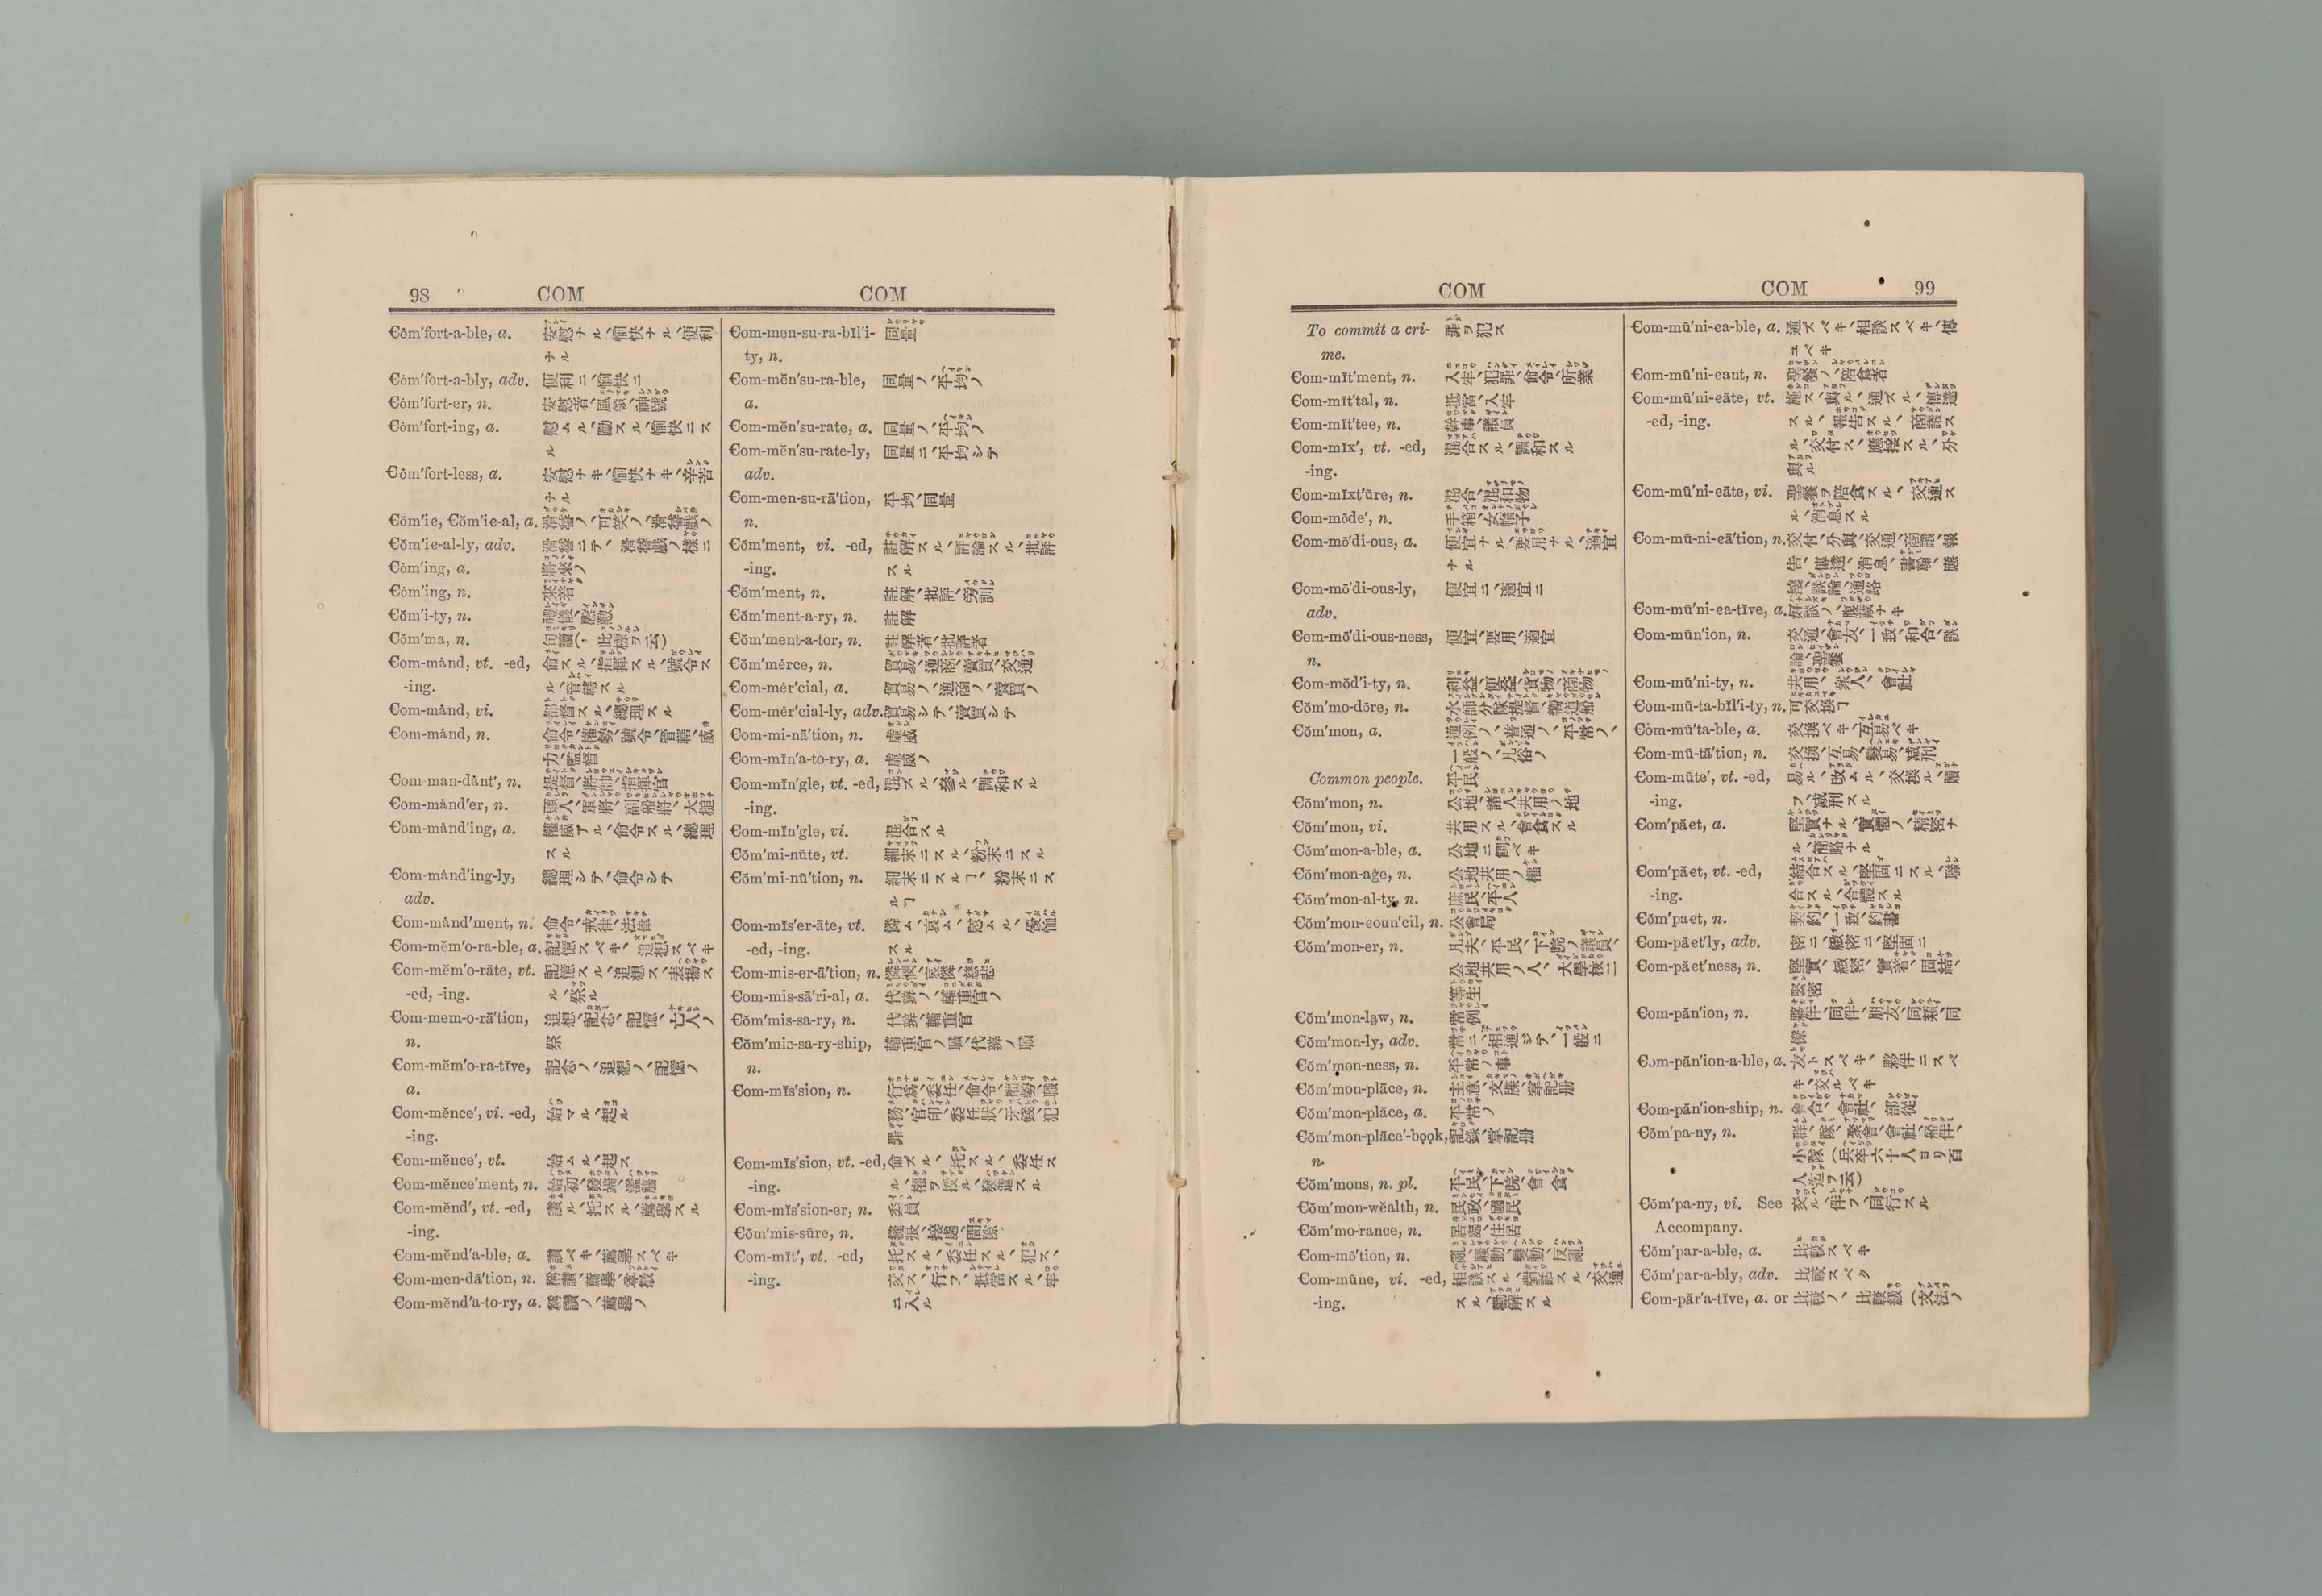 98 COM COM
Cȯm′fort-a-ble, a. 安慰ナル、愉快ナル、便利
ナル
Cȯm′fort-a-bly, adv. 便利ニ、愉快ニ
Cȯm′fort-er, n. 安慰者、風領、神號
Cȯm′fort-ing, a. 慰ムル、勸スル、愉快ニス
ル
Cȯm′fort-less, a. 安慰ナキ、愉快ナキ、辛苦
ナル
Cŏm′ic, Cŏm′ic-al, a. 滑稽ノ、可笑ノ、滑稽戯ノ
Cŏm′ic-al-ly, adv. 滑稽ニテ、滑稽戯ノ樣ニ
Cȯm′ing, a. 將來ノ
Cȯm′ing, n. 來着
Cŏm′i-ty, n. 禮儀、慇懃
Cŏm′ma, n. 句讀(，此標ヲ云)
Com-mȧnd, vt. -ed, 命スル、指揮スル、號令ス
-ing. ル、管轄スル
Com-mȧnd, vi. 都督スル、總理スル
Com-mȧnd, n. 命令、權勢、號令、管轄、威
力、監督
Com-man-dȧnt′, n. 提督、將帥、指揮官
Com-mȧnd′er, n. 頭人、軍將、副船將、大槌
Com-mȧnd′ing, a. 權威アル、命令スル、總理
スル
Com-mȧnd′ing-ly, 總理シテ、命令シテ
adv.
Com-mȧnd′ment, n. 命令、戒律、法律
Com-mĕm′o-ra-ble, a. 記憶スベキ、追想スベキ
Com-mĕm′o-rāte, vt. 記憶スル、追想ス、表揚ス
-ed, -ing. ル、祭ル
Com-mem-o-rā′tion, 追想、記念、記憶、亡人ノ
n. 祭
Com-mĕm′o-ra-tĭve, 記念ノ、追想ノ、記憶ノ
a.
Com-mĕnce′, vi. -ed, 始マル、起ル
-ing.
Com-mĕnce′, vt. 始ムル、起ス
Com-mĕnce′ment, n. 始初、發端、濫觴
Com-mĕnd′, vt. -ed, 讃ル、托スル、薦擧スル
-ing.
Com-mĕnd′a-ble, a. 讃ベキ、薦擧スベキ
Com-men-dā′tion, n. 稱讃、薦擧、尊敬
Com-mĕnd′a-to-ry, a. 稱讃ノ、薦擧ノ
Com-men-su-ra-bĭl′i- 同量
ty, n.
Com-mĕn′su-ra-ble, 同量ノ、平均ノ
a.
Com-mĕn′su-rate, a. 同量ノ、平均ノ
Com-mĕn′su-rate-ly, 同量ニ、平均シテ
adv.
Com-men-su-rā′tion, 平均、同量
n.
Cŏm′ment, vi. -ed, 註解スル、評論スル、批評
-ing. スル
Cŏm′ment, n. 註解、批評、旁訓
Cŏm′ment-a-ry, n. 註解
Cŏm′ment-a-tor, n. 註解者、批評者
Cŏm′mérce, n. 貿易、通商、賣買、交通
Com-mér′cial, a. 貿易ノ、通商ノ、賣買ノ
Com-mér′cial-ly, adv. 貿易シテ、賣買シテ
Com-mi-nā′tion, n. 虛威
Com-mĭn′a-to-ry, a. 虛威ノ
Com-mĭn′gle, vt. -ed, 混ズル、參ル、調和スル
-ing.
Com-mĭn′gle, vi. 混合スル
Cŏm′mi-nūte, vt. 細末ニスル、粉末ニスル
Com-mi-nū′tion, n. 細末ニスルヿ、粉末ニス
ルヿ
Com-mĭs′er-āte, vt. 憐ム、哀ム、慰ムル、優恤
-ed, -ing. スル
Com-mis-er-ā′tion, n. 憐憫、哀憐、慈悲
Com-mis-sā′ri-al, a. 代辨ノ、輜重官ノ
Cŏm′mis-sa-ry, n. 代辨、輜重官
Cŏm′mis-sa-ry-ship, 輜重官ノ職、代辨ノ職
n.
Com-mĭs′sion, n. 行爲、委任、命令、權勢、職
務、官印、委任狀、牙錢、犯
罪
Com-mĭs′sion, vt. -ed, 命ズル、托スル、委任ス
-ing. ル、權ヲ授ル、發遣スル
Com-mĭs′sion-er, n. 委員
Cŏm′mis-sūre, n. 縫痕、接處、間隙
Com-mĭt′, vt. -ed, 托スル、委任スル、犯ス、
-ing. 交ス、行フ、抵當スル、牢
ニ入ル
COM COM 99
To commit a cri- 罪ヲ犯ス
me.
Com-mĭt′ment, n. 入牢、犯罪、命令、所業
Com-mĭt′tal, n. 抵當、入牢
Com-mĭt′tee, n. 幹事、議員
Com-mĭx′, vt. -ed, 混合スル、調和スル
-ing.
Com-mĭxt′ūre, n. 混合、混和物
Com-mōde′, n. 手箱、女帽子
Com-mō′di-ous, a. 便宜ナル、要用ナル、適宜
ナル
Com-mō′di-ous-ly, 便宜ニ、適宜ニ
adv.
Com-mō′di-ous-ness, 便宜、要用、適宜
n.
Com-mŏd′i-ty, n. 利益、便益、貨物、商物
Cŏm′mo-dōre, n. 水師分隊提督、嚮道船
Cŏm′mon, a. 通例ノ、普通ノ、平常ノ、
一般ノ、凡俗ノ
Common people. 平民
Cŏm′mon, n. 公地、諸人共用ノ地
Cŏm′mon, vi. 共用スル、會食スル
Cŏm′mon-a-ble, a. 公地ニ飼ベキ
Cŏm′mon-age, n. 公地共用ノ權
Cŏm′mon-al-ty, n. 庶民、平人
Cŏm′mon-coun′cil, n. 公會局
Cŏm′mon-er, n. 凡夫、平民、下院ノ議員、
公地共用ノ人、大學校二
等生
Cŏm′mon-la̤w, n. 常例
Cŏm′mon-ly, adv. 常ニ、相通ジテ、一般ニ
Cŏm′mon-ness, n. 平常ノ事
Cŏm′mon-plāce, n. 主意、文課、掌記册
Cŏm′mon-plāce, a. 平常ノ
Cŏm′mon-plāce′-bo͝ok, 記錄、掌記册
n.
Cŏm′mons, n. pl. 平民、下院、會食
Cŏm′mon-wĕalth, n. 民政、國民
Cŏm′mo-rance, n. 居處、住居
Com-mō′tion, n. 亂、騷動、變動、反亂
Com-mūne, vi. -ed, 相談スル、對話スル、交通
-ing. スル、勸解スル
Com-mū′ni-ca-ble, a. 通ズベキ、相談スベキ、傳
ユベキ
Com-mū′ni-cant, n. 聖餐ノ、陪食者
Com-mū′ni-cāte, vt. 施ス、與ル、通ズル、傳達
-ed, -ing. スル、報告スル、商議ス
ル、交付ス、應接スル、分
與ル
Com-mū′ni-cāte, vi. 聖餐ヲ陪食スル、交通ス
ル、消息スル
Com-mū-ni-cā′tion, n. 交付、分與、交通、商議、報
告、傳達、消息、書翰、應
接、談論、通路
Com-mū′ni-ca-tĭve, a. 好談ノ、腹藏ナキ
Com-mūn′ion, n. 交通、會友、一致、和合、談
論、聖餐
Com-mū′ni-ty, n. 共用、衆人、會社
Com-mū-ta-bĭl′i-ty, n. 可交換ヿ
Com-mū′ta-ble, a. 交換ベキ、互易ベキ
Com-mū-tā′tion, n. 交換、互易、變易、減刑
Com-mūte′, vt. -ed, 易ル、改ムル、交換ル、贖
-ing. フ、減刑スル
Com′păct, a. 堅實ナル、實體ノ、精密ナ
ル、簡略ナル
Com′păct, vt. -ed, 結合スル、堅固ニスル、聯
-ing. 合スル、合體スル
Cŏm′pact, n. 契約、一致、約書
Com-păct′ly, adv. 密ニ、緻密ニ、堅固ニ
Com-păct′ness, n. 堅實、緻密、實著、固結、
緊密
Com-păn′ion, n. 夥伴、同伴、朋友、同類、同
僚
Com-păn′ion-a-ble, a. 友トスベキ、夥伴ニスベ
キ、交ルベキ
Com-păn′ion-ship, n. 會合、會社、部從
Cŏm′pa-ny, n. 群、隊、聚會、會社、船伴、
小隊(兵卒六十人ヨリ百
人迄ヲ云)
Cŏm′pa-ny, vi. See 交ル、伴フ、同行スル
Accompany.
Cŏm′par-a-ble, a. 比較スベキ
Cŏm′par-a-bly, adv. 比較スベク
Com-păr′a-tĭve, a. or 比較ノ、比較級(文法ノ